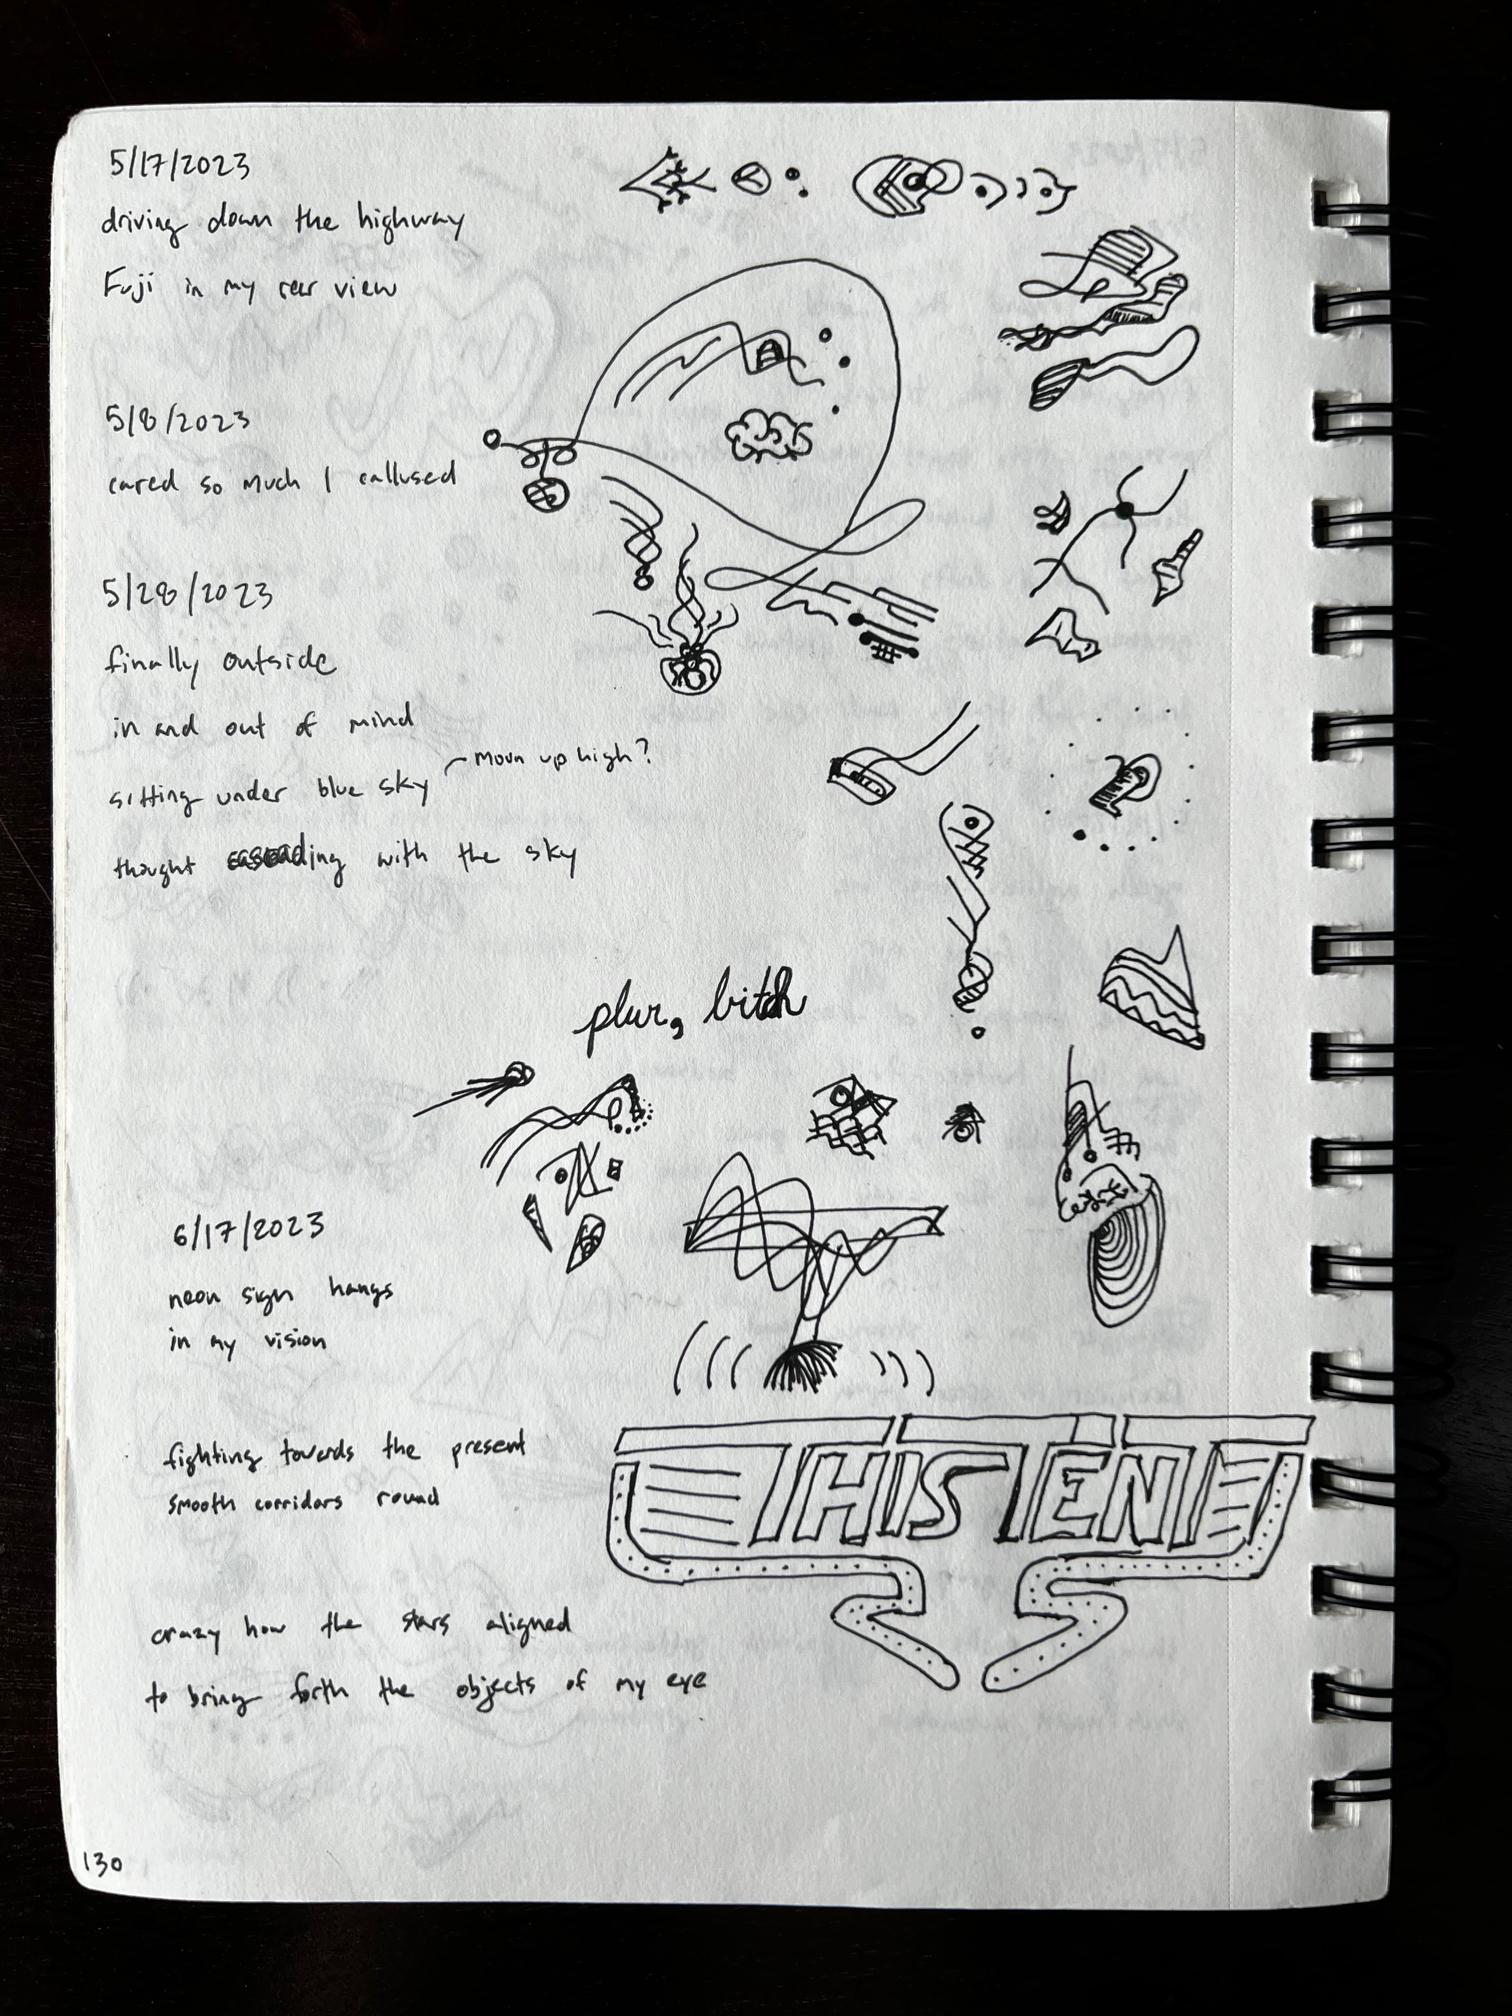 5/17/2023
driving down the highway
Fuji in my rear view
5/8/2023
cared so much I callused
5/28/2023
finally outside
in and out of mind
sitting under blue sky
moon up high?
thought cascading with the sky
plur, bitch
6/17/2023
neon sign hangs
in my vision
fighting towards the present
smooth corridors round
THIS TENT
crazy how the stars aligned
to bring forth the objects of my eye
130